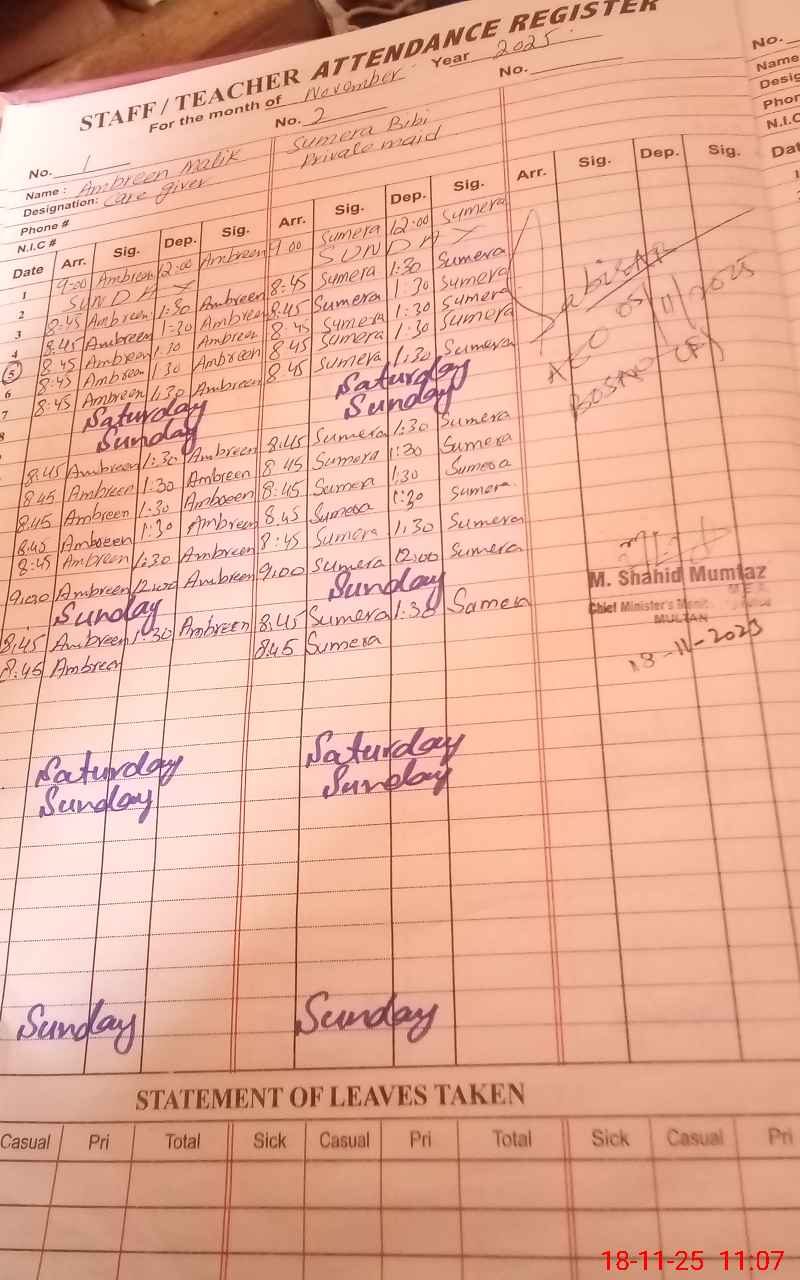 STAFF / TEACHER ATTENDANCE REGISTER
For the month of November Year 2025
No. 1 No. 2 No.
Name : Ambreen Malik Sumera Bibi
Designation: Care giver Private maid
Phone #
N.I.C #
Date Arr. Sig. Dep. Sig. Arr. Sig. Dep. Sig. Arr. Sig. Dep. Sig.
1 9:00 Ambreen 12:00 Ambreen 9 00 Sumera 12:00 Sumera
2 SUNDAY SUNDAY
3 8:45 Ambreen 1:30 Ambreen 8:45 Sumera 1:30 Sumera
4 8:45 Ambreen 1:30 Ambreen 8:45 Sumera 1 30 Sumera
5 8 45 Ambreen 1 30 Ambreen 8 45 Sumera 1:30 Sumera
6 8:45 Ambreen 1 30 Ambreen 8 45 Sumera 1:30 Sumera
7 8:45 Ambreen 1:30 Ambreen 8 45 Sumera 1:30 Sumera
8 Saturday Saturday
Sunday Sunday
8:45 Ambreen 1:30 Ambreen 8:45 Sumera 1:30 Sumera
8:45 Ambreen 1:30 Ambreen 8 45 Sumera 1:30 Sumera
8:45 Ambreen 1:30 Ambreen 8:45 Sumera 1:30 Sumera
8:45 Ambreen 1:30 Ambreen 8:45 Sumera 1:30 Sumera
8:45 Ambreen 1:30 Ambreen 8:45 Sumera 1:30 Sumera
9:00 Ambreen 12:00 Ambreen 9:00 Sumera 12:00 Sumera
Sunday Sunday
8:45 Ambreen 1:30 Ambreen 8:45 Sumera 1:30 Samera
8:45 Ambreen 8:45 Sumera
Saturday Saturday
Sunday Sunday
Sunday Sunday
AEO 05/11/2025
BOSAN
M. Shahid Mumtaz
Chief Minister's
MULTAN
18-11-2025
STATEMENT OF LEAVES TAKEN
Casual Pri Total Sick Casual Pri Total Sick Casual Pri
No.
Name
Desig
Phon
N.I.C
Dat
18-11-25 11:07